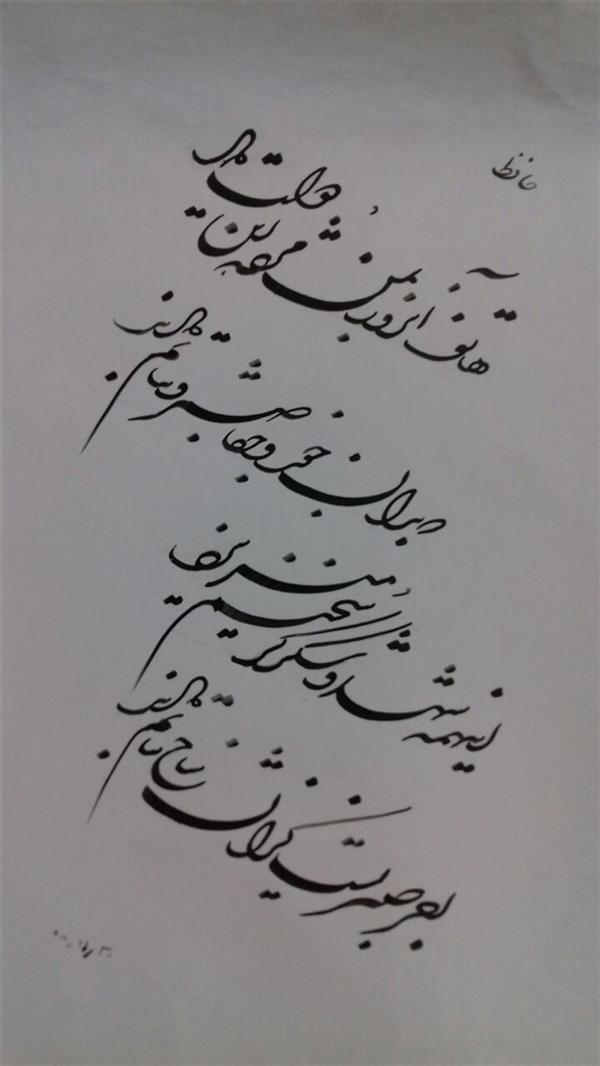 حافظ
هاتف آنروز بمن مژده این دولت داد
که بدان جور و جفا صبر و ثباتم دادند
اینهمه شهد و شکر کز سخنم میریزد
اجر صبریست کزان شاخ نباتم دادند